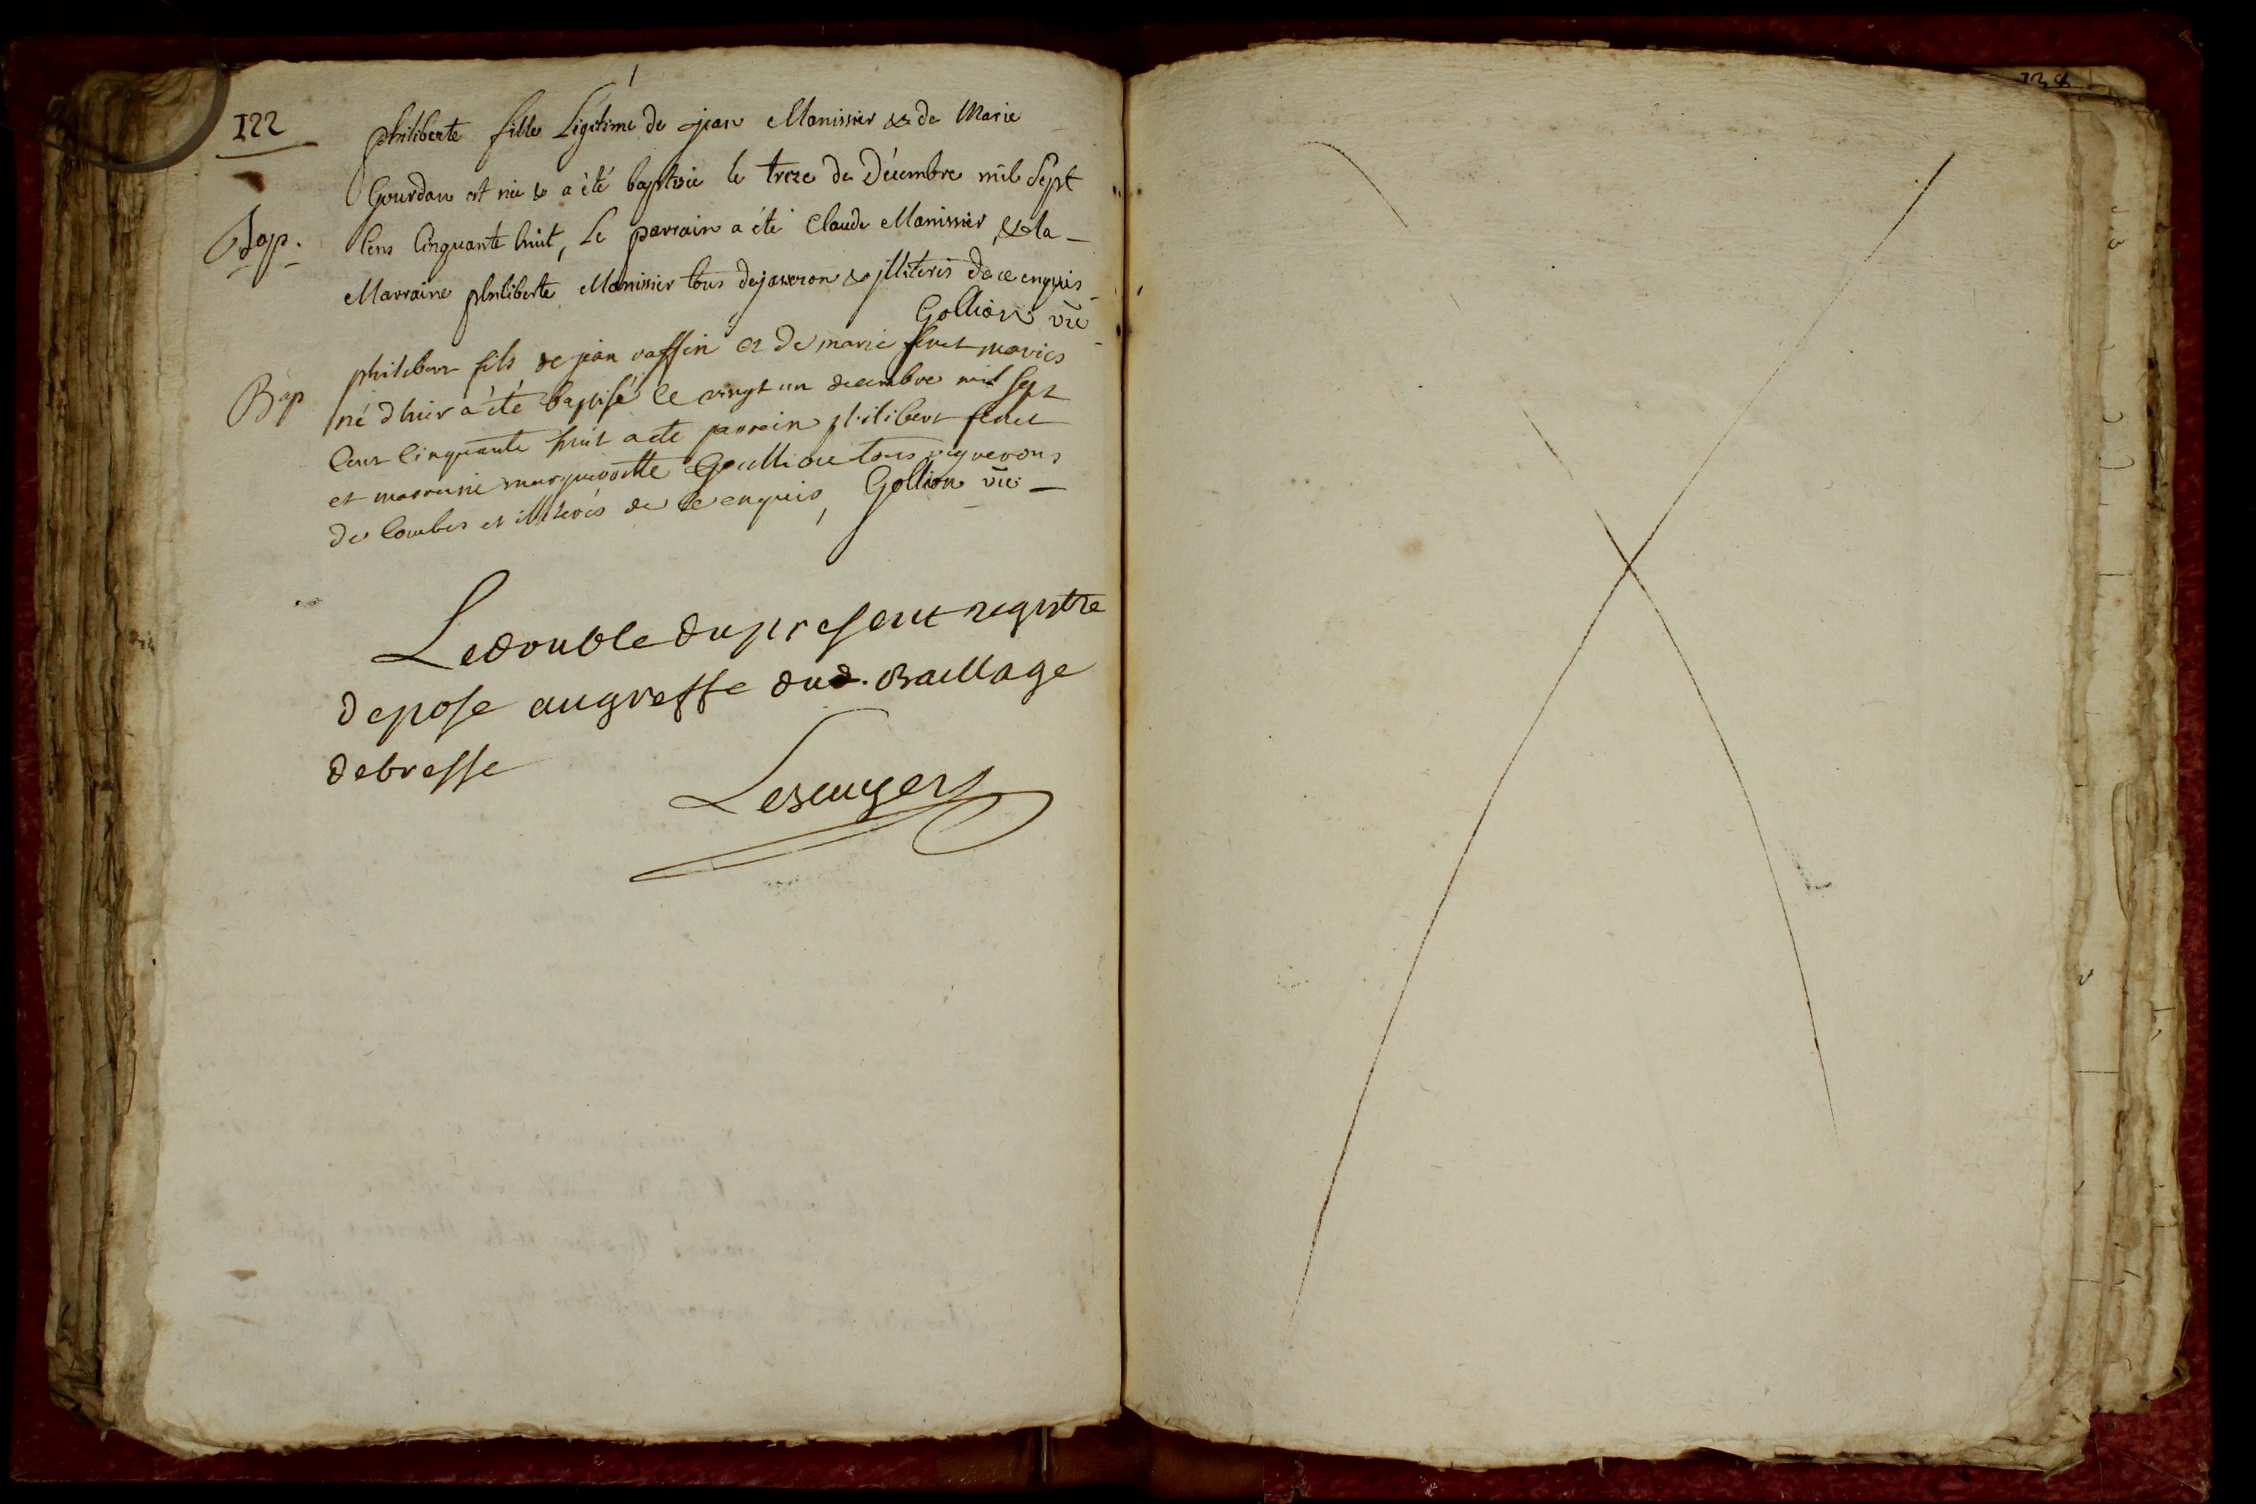 122
philiberte fille Légitime de jean Manissier & de Marie
Gourdan est née & a été baptisée le treze de Décembre mil Sept
Bap. Cens Cinquante huit, Le parrain a été Claude Manissier, & la
Marraine philiberte Manissier tous dejaseron & jlliteris de ce enquis
Gollion vic
philibert fils de jean raffin et de marie feuet mariés
Bap né d'hier a été baptisé le vingt un decembre mil sept
Cent Cinquante huit a ete parrein philibert feuet
et marreine margueritte Goullion tous vignerons
de Combes et illiterés de ce enquis, Gollion vic
Le double du present registre
depose au greffe dud. Baillage
de bresse